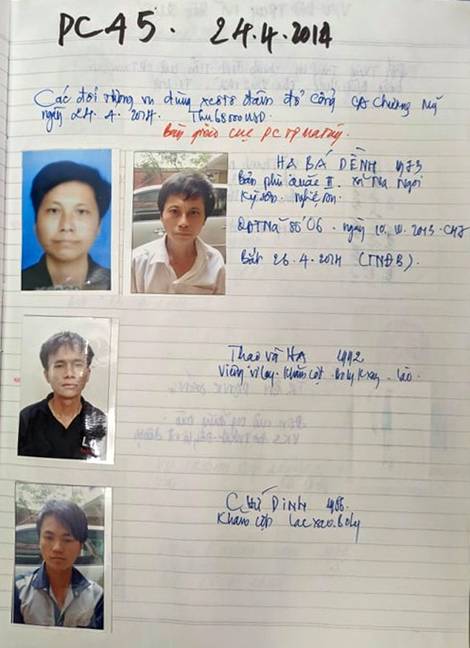 PC45. 24.4.2014
Các đối tượng vụ dùng xe đâm đổ cổng CA Chương Mỹ
ngày 24.4.2014. Thu 68000 USD.
Bàn giao cục PC
HẠ BÁ DỀNH 1973
Bản phù quặc II. xã Na Ngoi
Kỳ sơn. nghệ an.
QĐTNã số 06. ngày 10.10.2013
Bắt 26.4.2014 (TNĐB).
Thao và HẠ 1992
Khăm cột. Lào
CHỨ DINH 1986
Khăm cột lạc xao. Boly